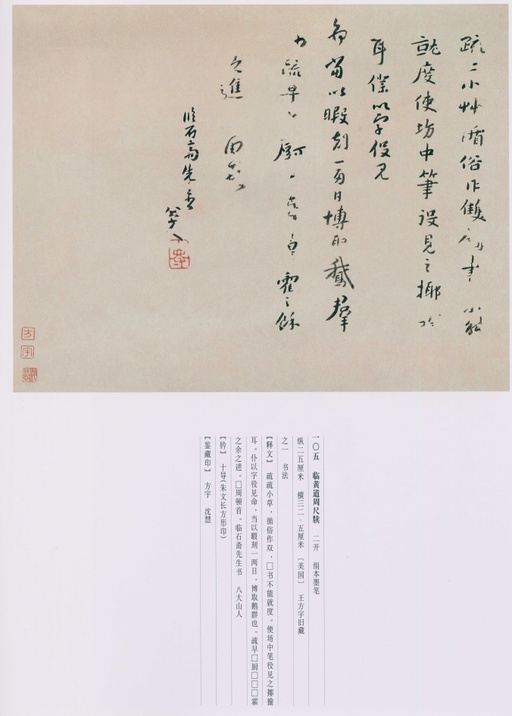 疏二小艸循俗作雙
書小能
就度使坊中筆設見之揶
耳僕以字役見
為當以暇刻一两日博取鵝羣
力疏早
霍之餘
之進
臨石齋先生
一〇五 临黄道周尺牍 二开 绢本墨笔
纵二五厘米 横三二·五厘米 〔美国〕 王方宇旧藏
之一 书法
【释文】 疏疏小草，循俗作双，□书不能就度，使场中笔役见之揶揄
耳。仆以字役见命，当以暇刻一两日，博取鹅群也。疏早□厨□□□霍
之余之进，□周顿首。临石斋先生书 八大山人
【钤】 十导（朱文长方形印）
【鉴藏印】 方宇 沈慧